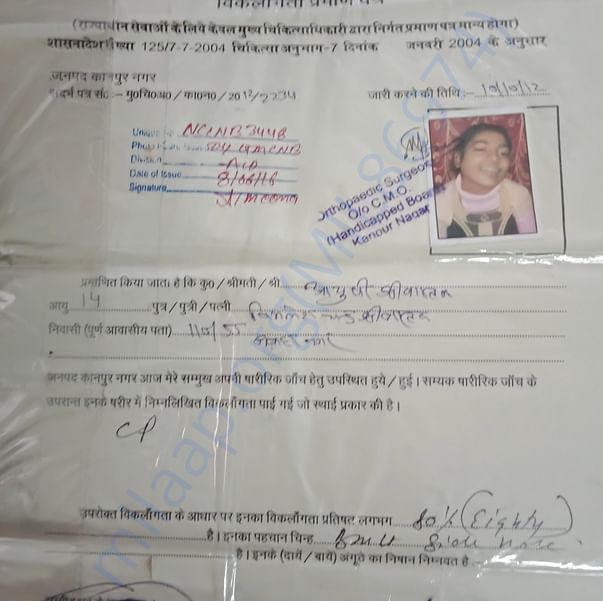 विकलांगता प्रमाण पत्र
(राज्याधीन सेवाओं के लिये केवल मुख्य चिकित्साधिकारी द्वारा निर्गत प्रमाण पत्र मान्य होगा)
शासनादेश संख्या 125/7-7-2004 चिकित्सा अनुभाग-7 दिनांक जनवरी 2004 के अनुसार
जनपद कानपुर नगर
संदर्भ पत्र सं० :- मु०चि०अ० / का०न० / 2012/2234
जारी करने की तिथि :- 10/10/12
Unique No. NCLNB3448
Division
Date of Issue 8/06/16
Signature
Orthopaedic Surgeon
O/o C.M.O.
(Handicapped Board)
Kanpur Nagar
प्रमाणित किया जाता है कि कु० / श्रीमती / श्री
आयु 14 पुत्र / पुत्री / पत्नी
निवासी (पूर्ण आवासीय पता) 110/55
जनपद कानपुर नगर आज मेरे सम्मुख अपनी शारीरिक जाँच हेतु उपस्थित हुये / हुई। सम्यक शारीरिक जाँच के
उपरान्त इनके शरीर में निम्नलिखित विकलाँगता पाई गई जो स्थाई प्रकार की है।
CP
उपरोक्त विकलाँगता के आधार पर इनका विकलाँगता प्रतिषत लगभग 80% (Eighty)
है। इनका पहचान चिन्ह
है। इनके (दायें / बायें) अंगूठे का निषान निम्नवत है
milaap.org